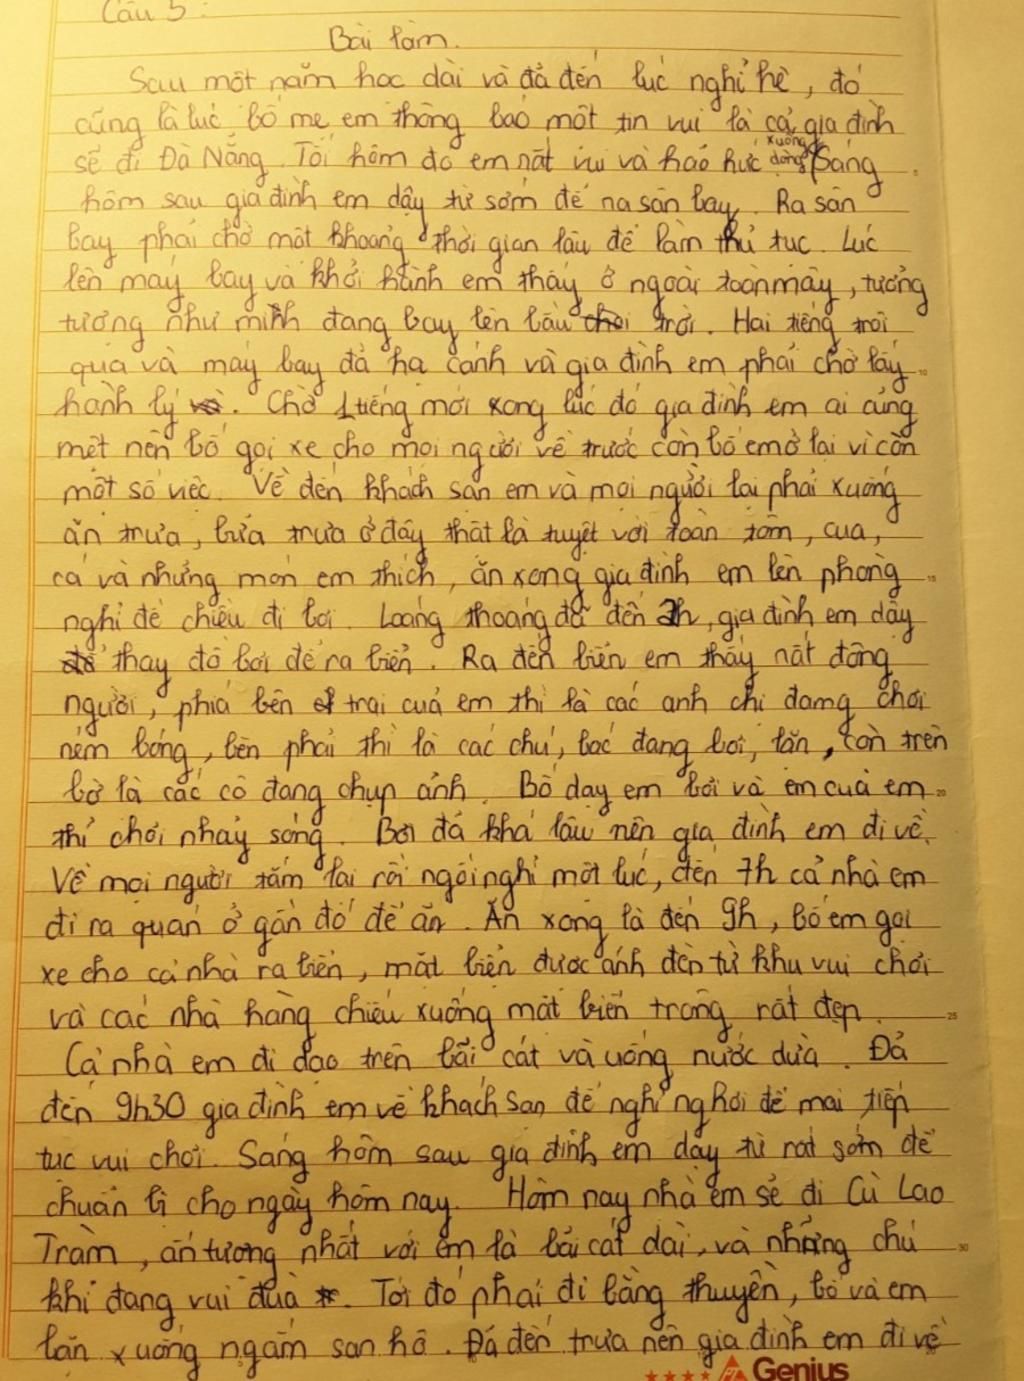 Câu 5:
Bài làm.
Sau một năm học dài và đã đến lúc nghỉ hè, đó
cũng là lúc bố mẹ em thông báo một tin vui là cả gia đình
sẽ đi Đà Nẵng. Tối hôm đó em nất vui và háo hức xuống dòng Sáng
hôm sau gia đình em dậy từ sớm để na sân bay. Ra sân
bay phải chờ một khoảng thời gian lâu để làm thủ tục. Lúc
lên máy bay và khởi hành em thấy ở ngoài toàn mây, tưởng
tượng như mình đang bay lên bầu trời. Hai tiếng trôi
qua và máy bay đã hạ cánh và gia đình em phải chờ lấy
hành lý. Chờ 1 tiếng mới xong lúc đó gia đình em ai cũng
mệt nên bố gọi xe cho mọi người về trước còn bố em ở lại vì còn
một số việc. Về đến khách sạn em và mọi người lại phải xuống
ăn trưa, bữa trưa ở đây thật là tuyệt vời toàn tôm, cua,
cá và những món em thích, ăn xong gia đình em lên phòng
nghỉ để chiều đi bơi. Loáng thoáng đã đến 2h, gia đình em dậy
thay đồ bơi để ra biển. Ra đến biển em thấy nất đông
người, phía bên trái của em thì là các anh chị đamg chơi
ném bóng, bên phải thì là các chú, bác đang bơi, lặn, còn trên
bờ là các cô đang chụp ảnh. Bố dạy em bơi và em của em
thì chơi nhảy sóng. Bơi đã khá lâu nên gia đình em đi về.
Về mọi người tắm lại rồi ngồi nghỉ một lúc, đến 7h cả nhà em
đi ra quán ở gần đó để ăn. Ăn xong là đến 9h, bố em gọi
xe cho cả nhà ra biển, mặt biển được ánh đèn từ khu vui chơi
và các nhà hàng chiếu xuống mặt biển trông rất đẹp.
Cả nhà em đi dạo trên bãi cát và uống nước dừa. Đã
đến 9h30 gia đình em về khách sạn để nghỉ ngơi để mai tiếp
tục vui chơi. Sáng hôm sau gia đình em dậy từ rất sớm để
chuẩn bị cho ngày hôm nay. Hôm nay nhà em sẽ đi Cù Lao
Tràm, ấn tượng nhất với em là bãi cát dài, và những chú
khỉ đang vui đùa. Tới đó phải đi bằng thuyền, bố và em
lặn xuống ngắm san hô. Đã đến trưa nên gia đình em đi về
Genius